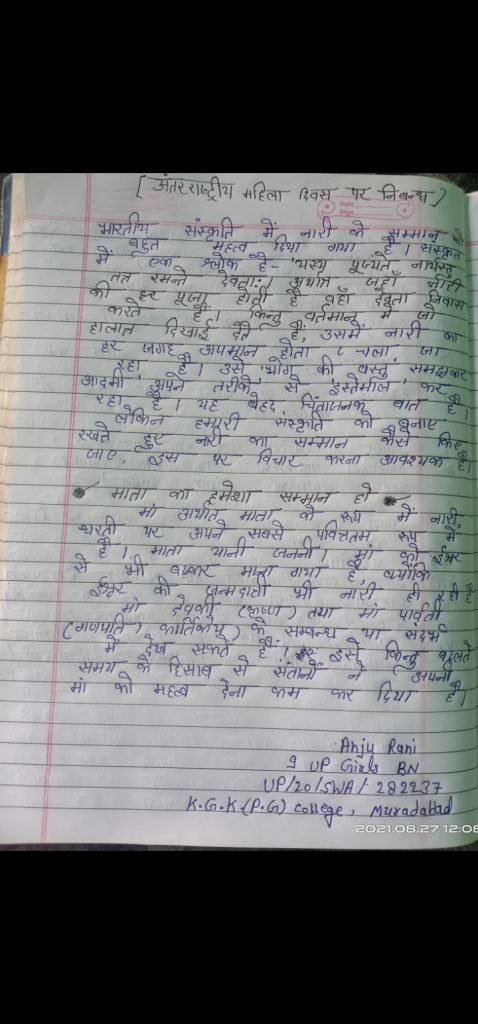 [अंतरराष्ट्रीय महिला दिवस पर निबन्ध)
Date
Page
भारतीय संस्कृति में नारी के सम्मान को
बहुत महत्व दिया गया है। संस्कृत
में एक श्लोक है- 'यस्य पूज्यंते नार्यस्तु
तत्र रमन्ते देवताः। अर्थात जहाँ नारी
की हर पूजा होती है वहाँ देवता निवास
करते हैं। किन्तु वर्तमान में जो
हालात दिखाई देते हैं, उसमें नारी का
हर जगह अपमान होता चला जा
रहा है। उसे 'भोग की वस्तु' समझकर
आदमी 'अपने तरीके' से 'इस्तेमाल' कर
रहा है। यह बेहद चिंताजनक बात है।
लेकिन हमारी संस्कृति को बनाए
रखते हुए नारी का सम्मान कैसे किए
जाए, इस पर विचार करना आवश्यक है।
माता का हमेशा सम्मान हो
मां अर्थात माता के रूप में नारी,
धरती पर अपने सबसे पवित्तम रूप में
है। माता यानी जननी। मां को ईश्वर
से भी बढ़कर माना गया है, क्योंकि
ईश्वर की जन्मदात्री भी नारी ही रही है
मां देवकी (कृष्ण) तथा मां पार्वती
(गणपति/ कार्तिकेय) के सम्बन्ध या संदर्भ
में देख सकते हैं। इसे किन्तु बदलते
समय के हिसाब से संतानों ने अपनी
मां को महत्व देना कम कर दिया है।
Anju Rani
9 UP Girls BN
UP/20/SWA/ 282237
K.G.K.(P.G) college, Muradabad
2021.08.27 12:08